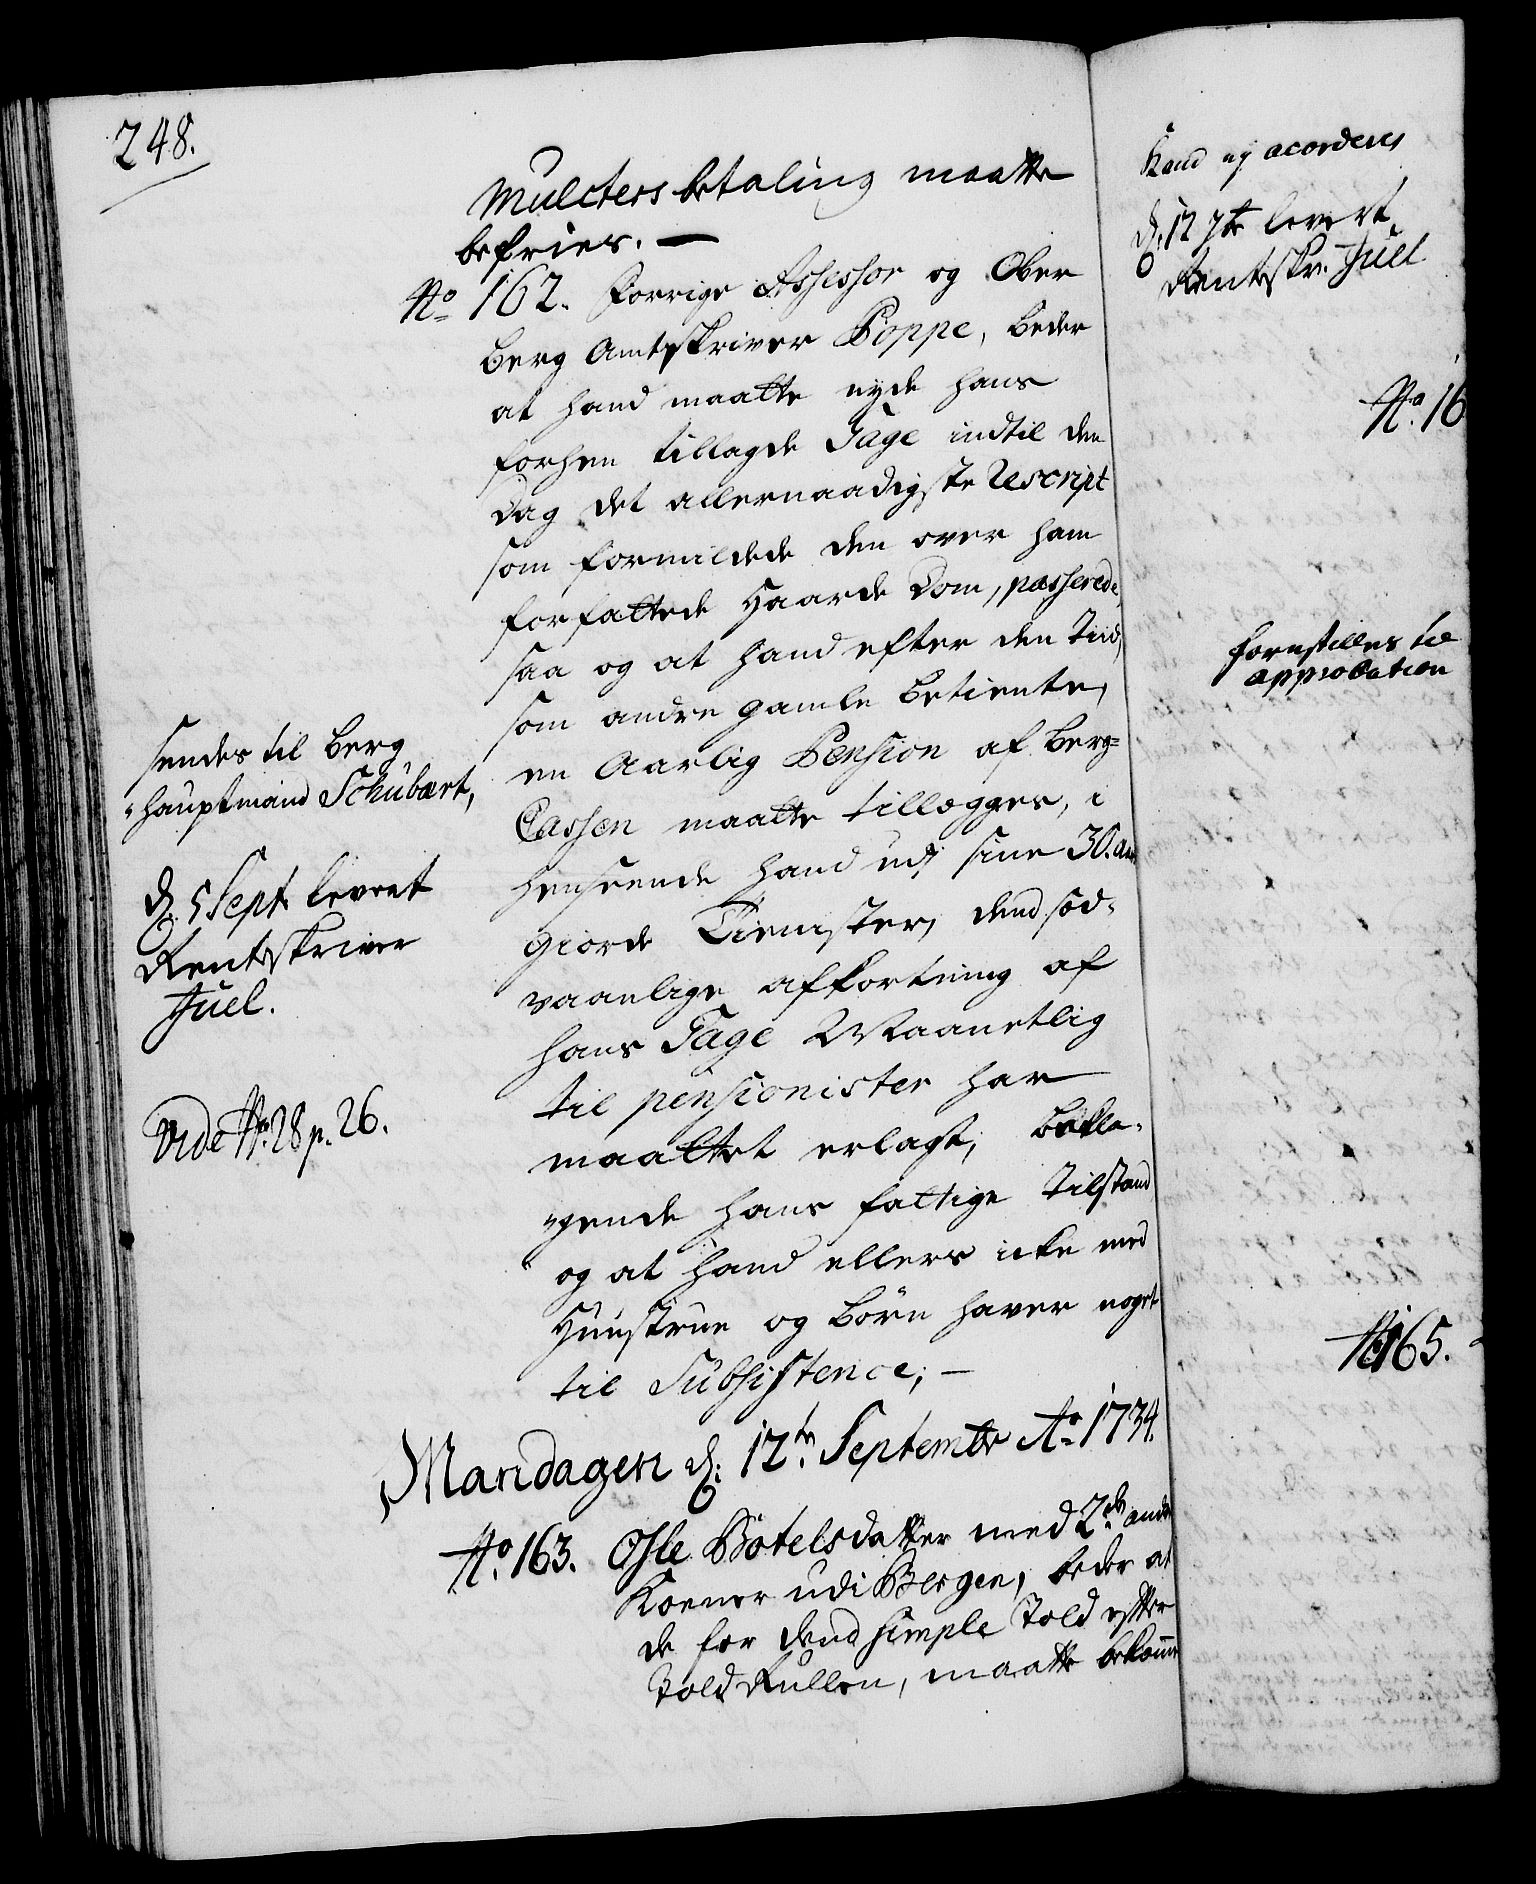 248.
Mulcters betaling maatte
befries. —
No 162. Forrige Assessor og Ober
Berg Amtskriver Poppe, beder
at hand maatte nyde hans
forhen tillagde Gage indtil den
Dag det allernaadigste Rescript
som formildede den over ham
forfattede Haarde Dom, passerede,
saa og at hand efter den Tiid,
som andre gamle betiente,
en Aarlig Pension af Berg=
Cassen maatte tillegges, i
henseende hand udj sine 30. aar
giorde Tienister, dend sæd=
vaanlige afkortning af
hans Gage Maanetlig
til pensionister har
maattet erlagt, bekla=
gende hans fattige tilstand
og at hand ellers icke med
Hustrue og børn haver noget
til Subsistence; —
sendes til Berg
hauptmand Schubært,
d. 5 Sept. levert
Rentskriver
Juel.
Vide No. 28 p. 26.
Mandagen d: 12te Septembr Ao 1734.
No. 163. Osle Botelsdatter med 2de andre
Koener udi Bergen, beder at
de for dend simple Told efter
Told Rullen, maatte bekomme
Kand ej acorderes
d: 17 7br levert
Rentskr. Juel
No. 16
forestilles til
approbation
No 165.